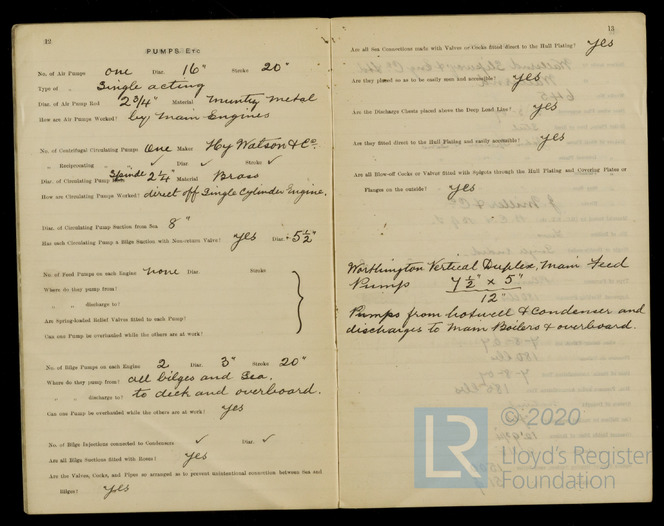 12
PUMPS, ETC.
No. of Air Pumps one Dia. 16" Stroke 20"
Type of " Single acting
Dia. of Air Pump Rod 2 3/4" Material Muntz Metal
How are Air Pumps Worked? by Main Engines
No. of Centrifugal Circulating Pumps One Maker Hy Watson & Co.
" Reciprocating " ✓ Dia. ✓ Stroke ✓
Dia. of Circulating Pump Spindle 2 1/4" Material Brass
How are Circulating Pumps Worked? direct off Single Cylinder Engine.
Dia. of Circulating Pump Suction from Sea 8"
Has each Circulating Pump a Bilge Suction with Non-return Valve? yes Dia. 5 1/2"
No. of Feed Pumps on each Engine none Dia. Stroke
Where do they pump from?
" " discharge to?
Are Spring-loaded Relief Valves fitted to each Pump?
Can one Pump be overhauled while the others are at work?
No. of Bilge Pumps on each Engine 2 Dia. 3" Stroke 20"
Where do they pump from? all bilges and Sea.
" " discharge to? to deck and overboard.
Can one Pump be overhauled while the others are at work? yes
No. of Bilge Injections connected to Condensers ✓ Dia. ✓
Are all Bilge Suctions fitted with Roses? yes
Are the Valves, Cocks, and Pipes so arranged as to prevent unintentional connection between Sea and
Bilges? yes
13
Are all Sea Connections made with Valves or Cocks fitted direct to the Hull Plating? yes
Are they placed so as to be easily seen and accessible? yes
Are the Discharge Chests placed above the Deep Load Line? yes
Are they fitted direct to the Hull Plating and easily accessible? yes
Are all Blow-off Cocks or Valves fitted with Spigots through the Hull Plating and Covering Plates or
Flanges on the outside? yes
Worthington Vertical Duplex Main Feed
Pump 7 1/2" x 5"
12"
Pumps from hotwell & Condenser and
discharges to Main Boilers & overboard.
© 2020
LR
Lloyd's Register
Foundation